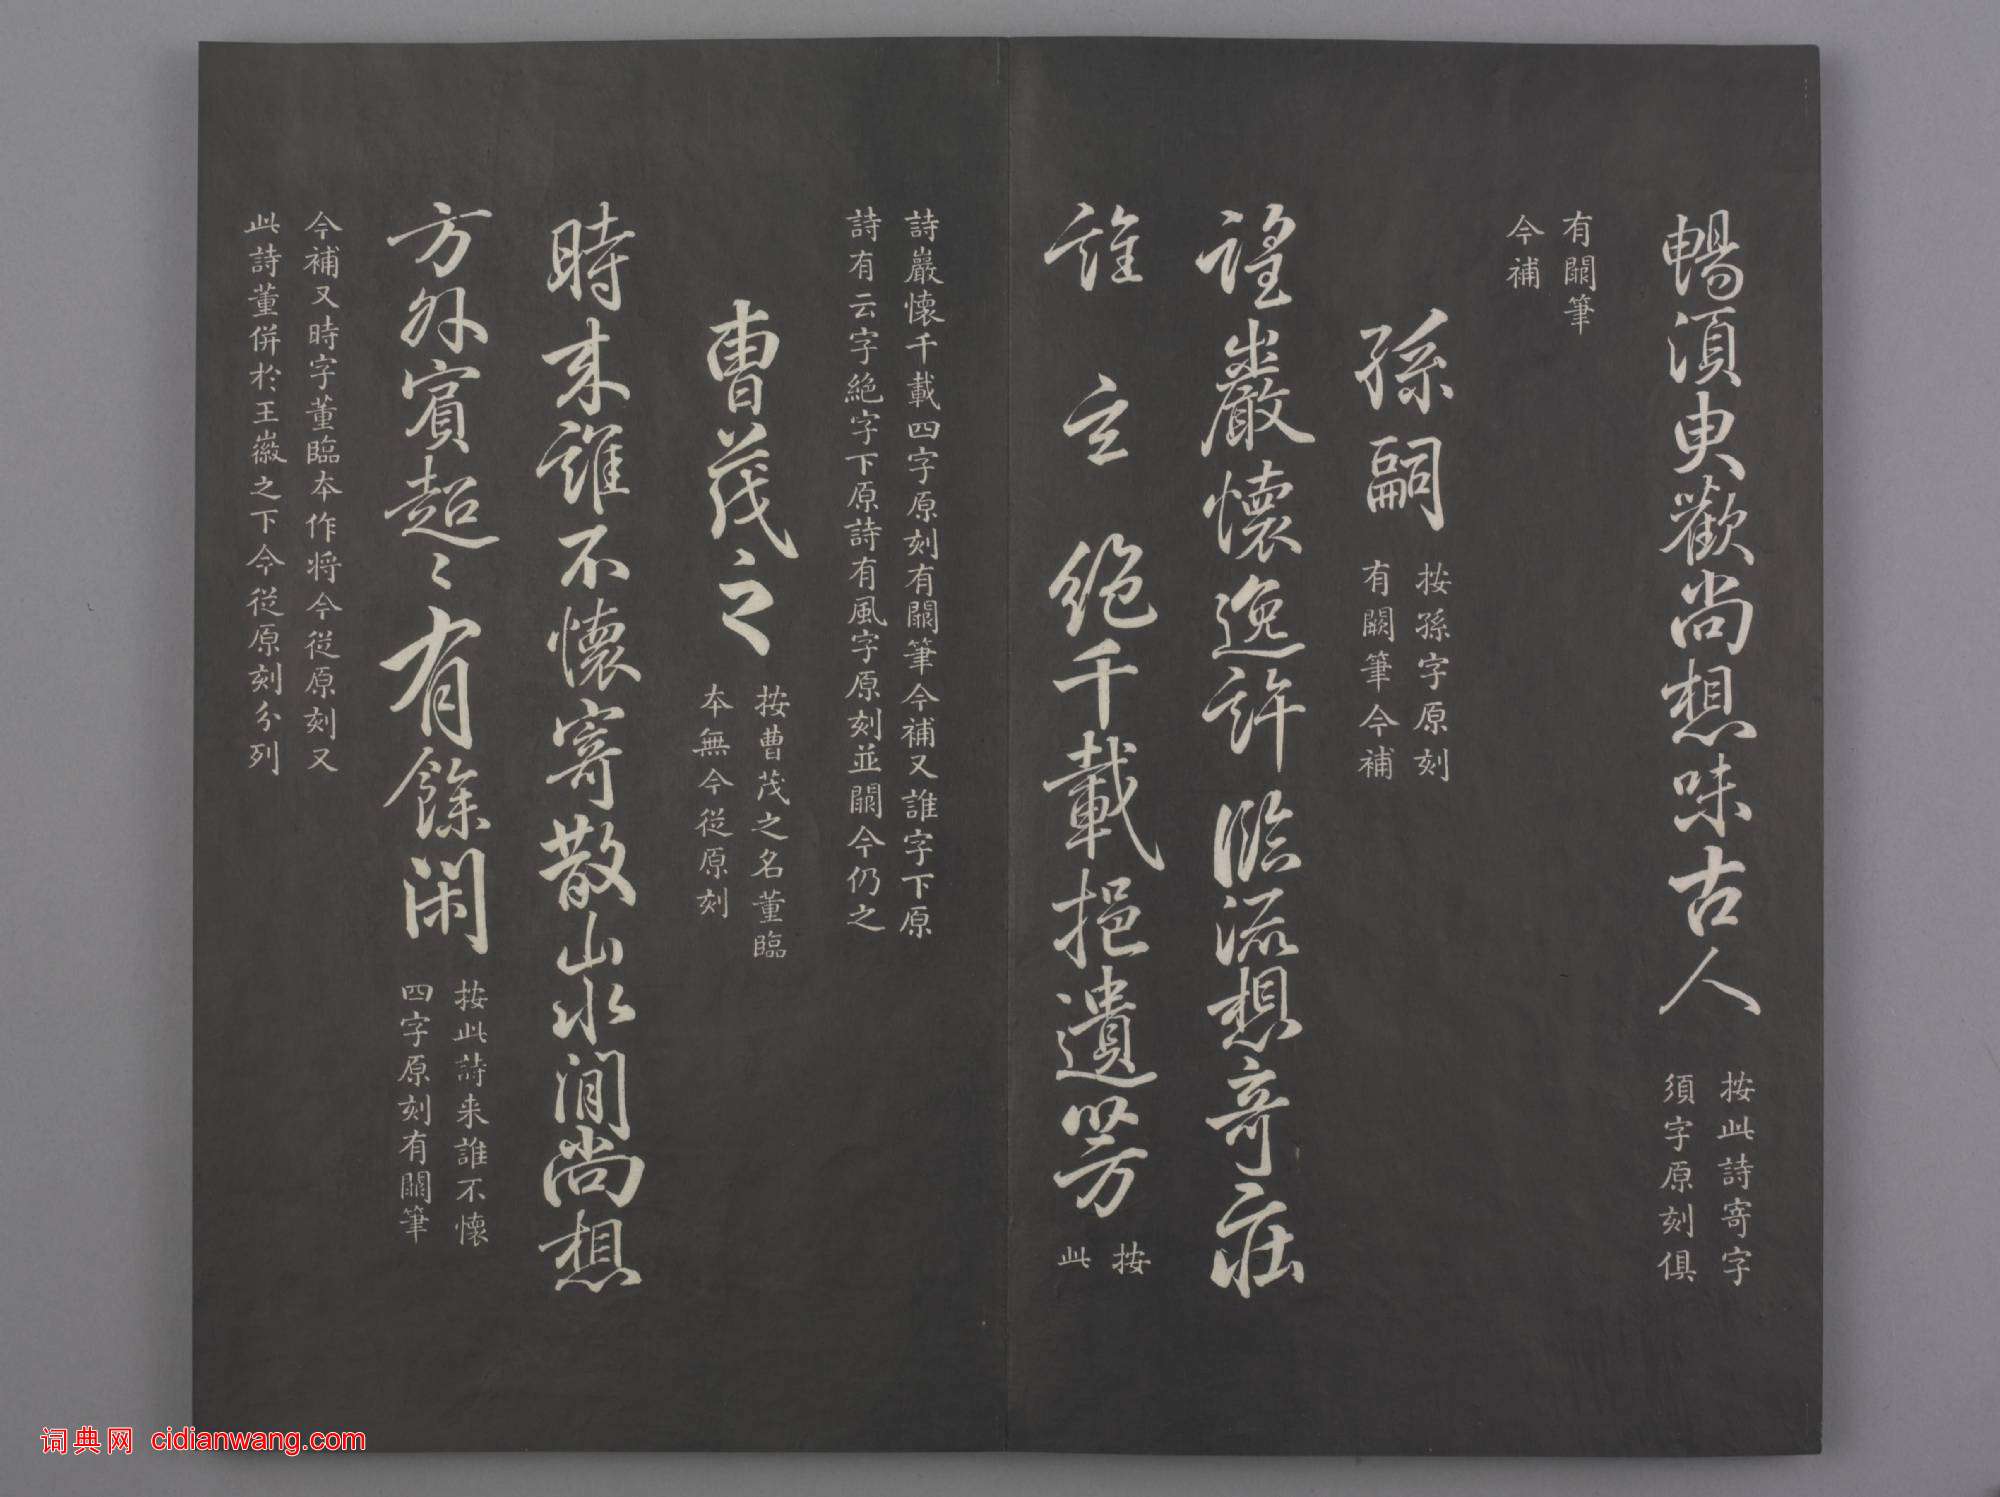 暢須臾歡尚想味古人
按此詩寄字
須字原刻俱
有闕筆
今補
孫嗣
按孫字原刻
有闕筆今補
望巖懷逸許臨流想奇莊
誰云絕千載挹遺芳
按
此
詩巖懷千載四字原刻有闕筆今補又誰字下原
詩有云字絕字下原詩有風字原刻並闕今仍之
曹茂之
按曹茂之名董臨
本無今從原刻
時来誰不懷寄散山水間尚想
方外賓超〻有餘閑
按此詩来誰不懷
四字原刻有闕筆
今補又時字董臨本作将今從原刻又
此詩董併於王徽之下今從原刻分列
词典网 cidianwang.com